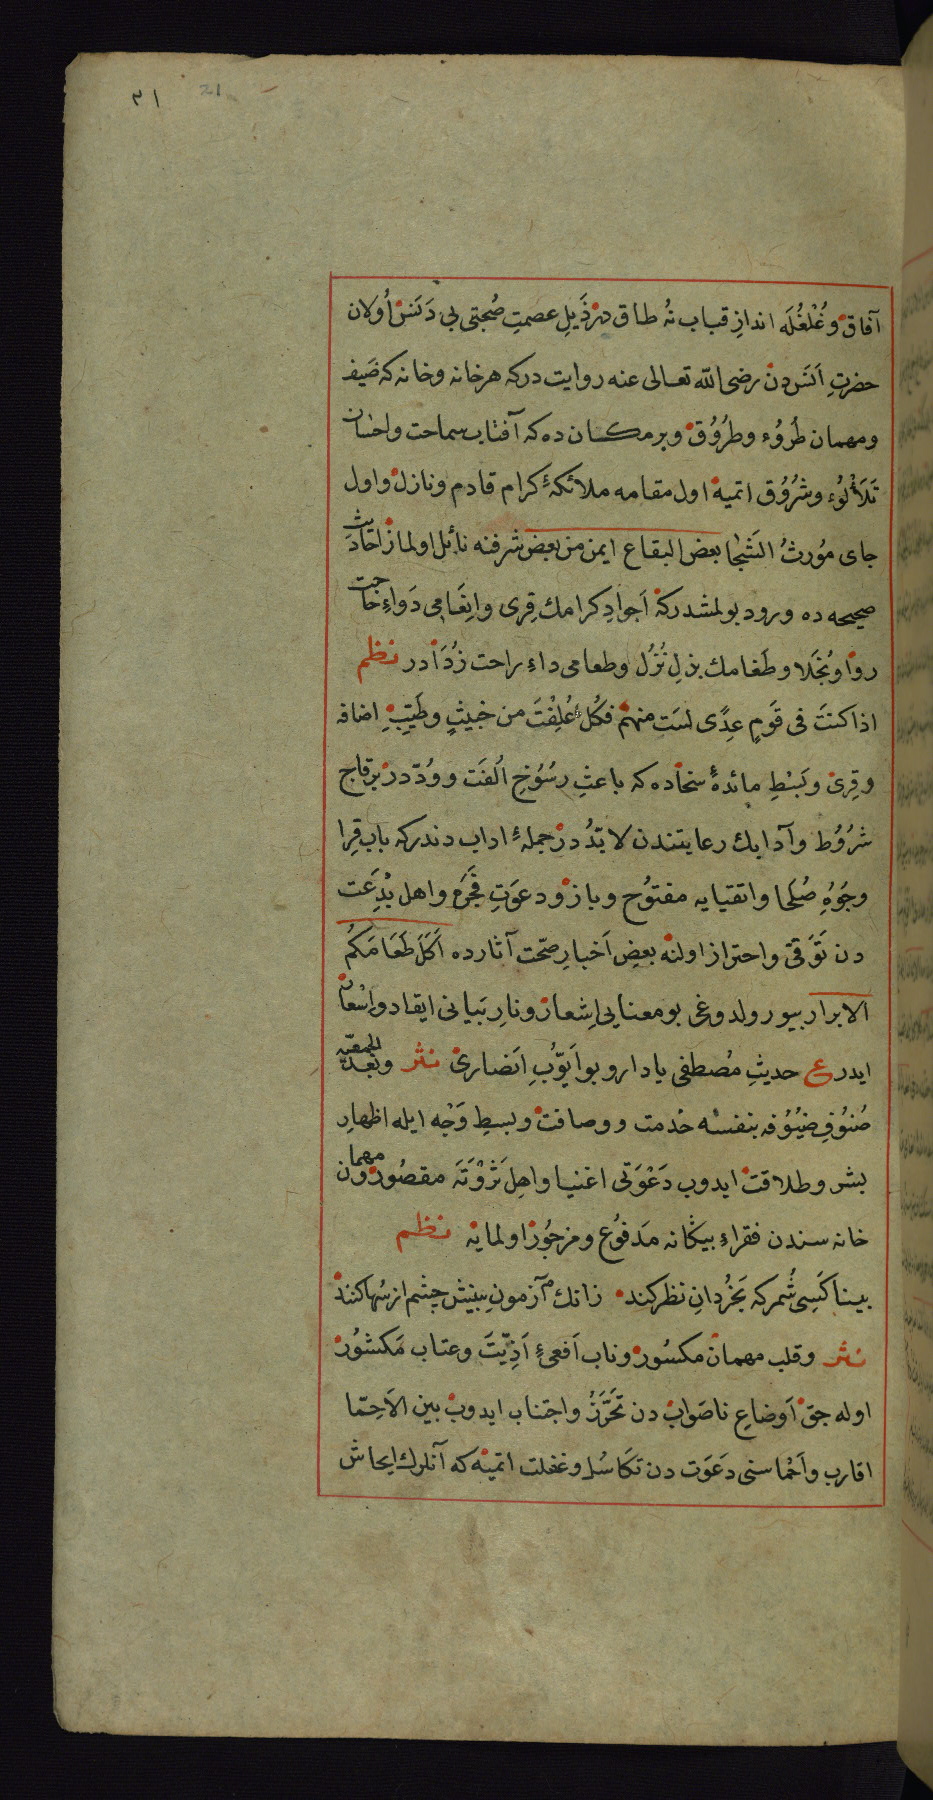 ٢١ 21
آفاق وغُلْغُلَه اندازِ قباب نُه طاق در ذَيلِ عصمتِ صُحبتى بى دَنَس اُولان
حضرتِ اَنَس دن رضى الله تعالى عنه روايت دركه هرخانه وخانه كه ضَيف
ومهمان طُرُوء وطُرُوق وبر مكان ده كه آفتاب سماحت واحسان
تَلَأْلُؤ وشُرُوق اتميه اول مقامه ملائكۀ كرام قادم ونازل واول
جاى مُورثُ الشَجا بعض البقاع ايمن من بعض شرفنه نائل اولماز احاديث
صحيحه ده ورود بولمشدركه اَجوادِ كرامك قِرى وانِعَامى دَواءِ حاجت
روا وبُخَلا وطَغامك بذلِ نُزُل وطعامى داءِ راحت زُدَادر نظم
اذا كنتَ فى قَومٍ عِدًى لستَ منهم فكُلْ ما عُلِفْتَ من خبيثٍ وطَيِّبِ اضافه
وقِرى وبَسْطِ مائدۀ سخاده كه باعثِ رسُوخِ اُلفَت ووُدّ در برقاج
شرُوُط وآدابك رعايتندن لا بُدّ در جملۀ اداب دندركه باب قِرا
وجوُهِ صُلَحا واتقيايه مفتوُح وباز ودعوَتِ فَجَره واهل بِدْعَت
دن تَوَقّى واحتراز اولنه بعضِ اَخبارِ صحّت آثارده اَكَلَ طَعَامَكُم
الابرار بيورولدوغى بومعنايى اِشعار ونارِ بَيانى ايقاد واِسْعار
ايدر ع حديثِ مُصطفى يادار و بوا يّوُبِ اَنصارى نثر وبَعْدَ الجمعيّه
صُنوُفِ ضيُوُفه بنفسه خدمت ووصافت وبسطِ وَجْه ايله اظهارِ
بشر وطلاقت ايدوب دَعْوَتى اغنيا واهلِ ثَرْوَتَه مقصُور ومهمان
خانه سندن فقراءِ بيكانه مَدفوُع ومزجُور اولمايه نظم
بينا كَسِى شُمركه بَخُردانِ نظركند زانك آزمونِ بينِش چشم از سُها كنند
نثر وقلبِ مهمان مكسُور وناب اَفعىءِ اَذِيّتَ وعتاب مَكشوُر
اوله جق اَوضاعِ ناصَواب دن تَحَرُّز واجتناب ايدوب بين الاَحِبّا
اقارب واَحْما سنى دَعوَت دن تكاسُل وغفلت اتميه كه آنلرك ايحاش